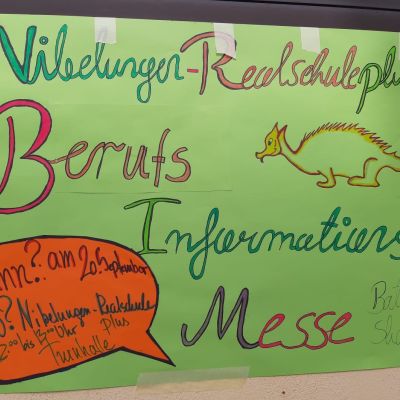 Nibelungen-Realschule plu
Berufs
Informations
Messe
nn? am 20. September
o? Nibelungen-Realschule
plus
00 bis 13:00 Uhr
Turnhalle